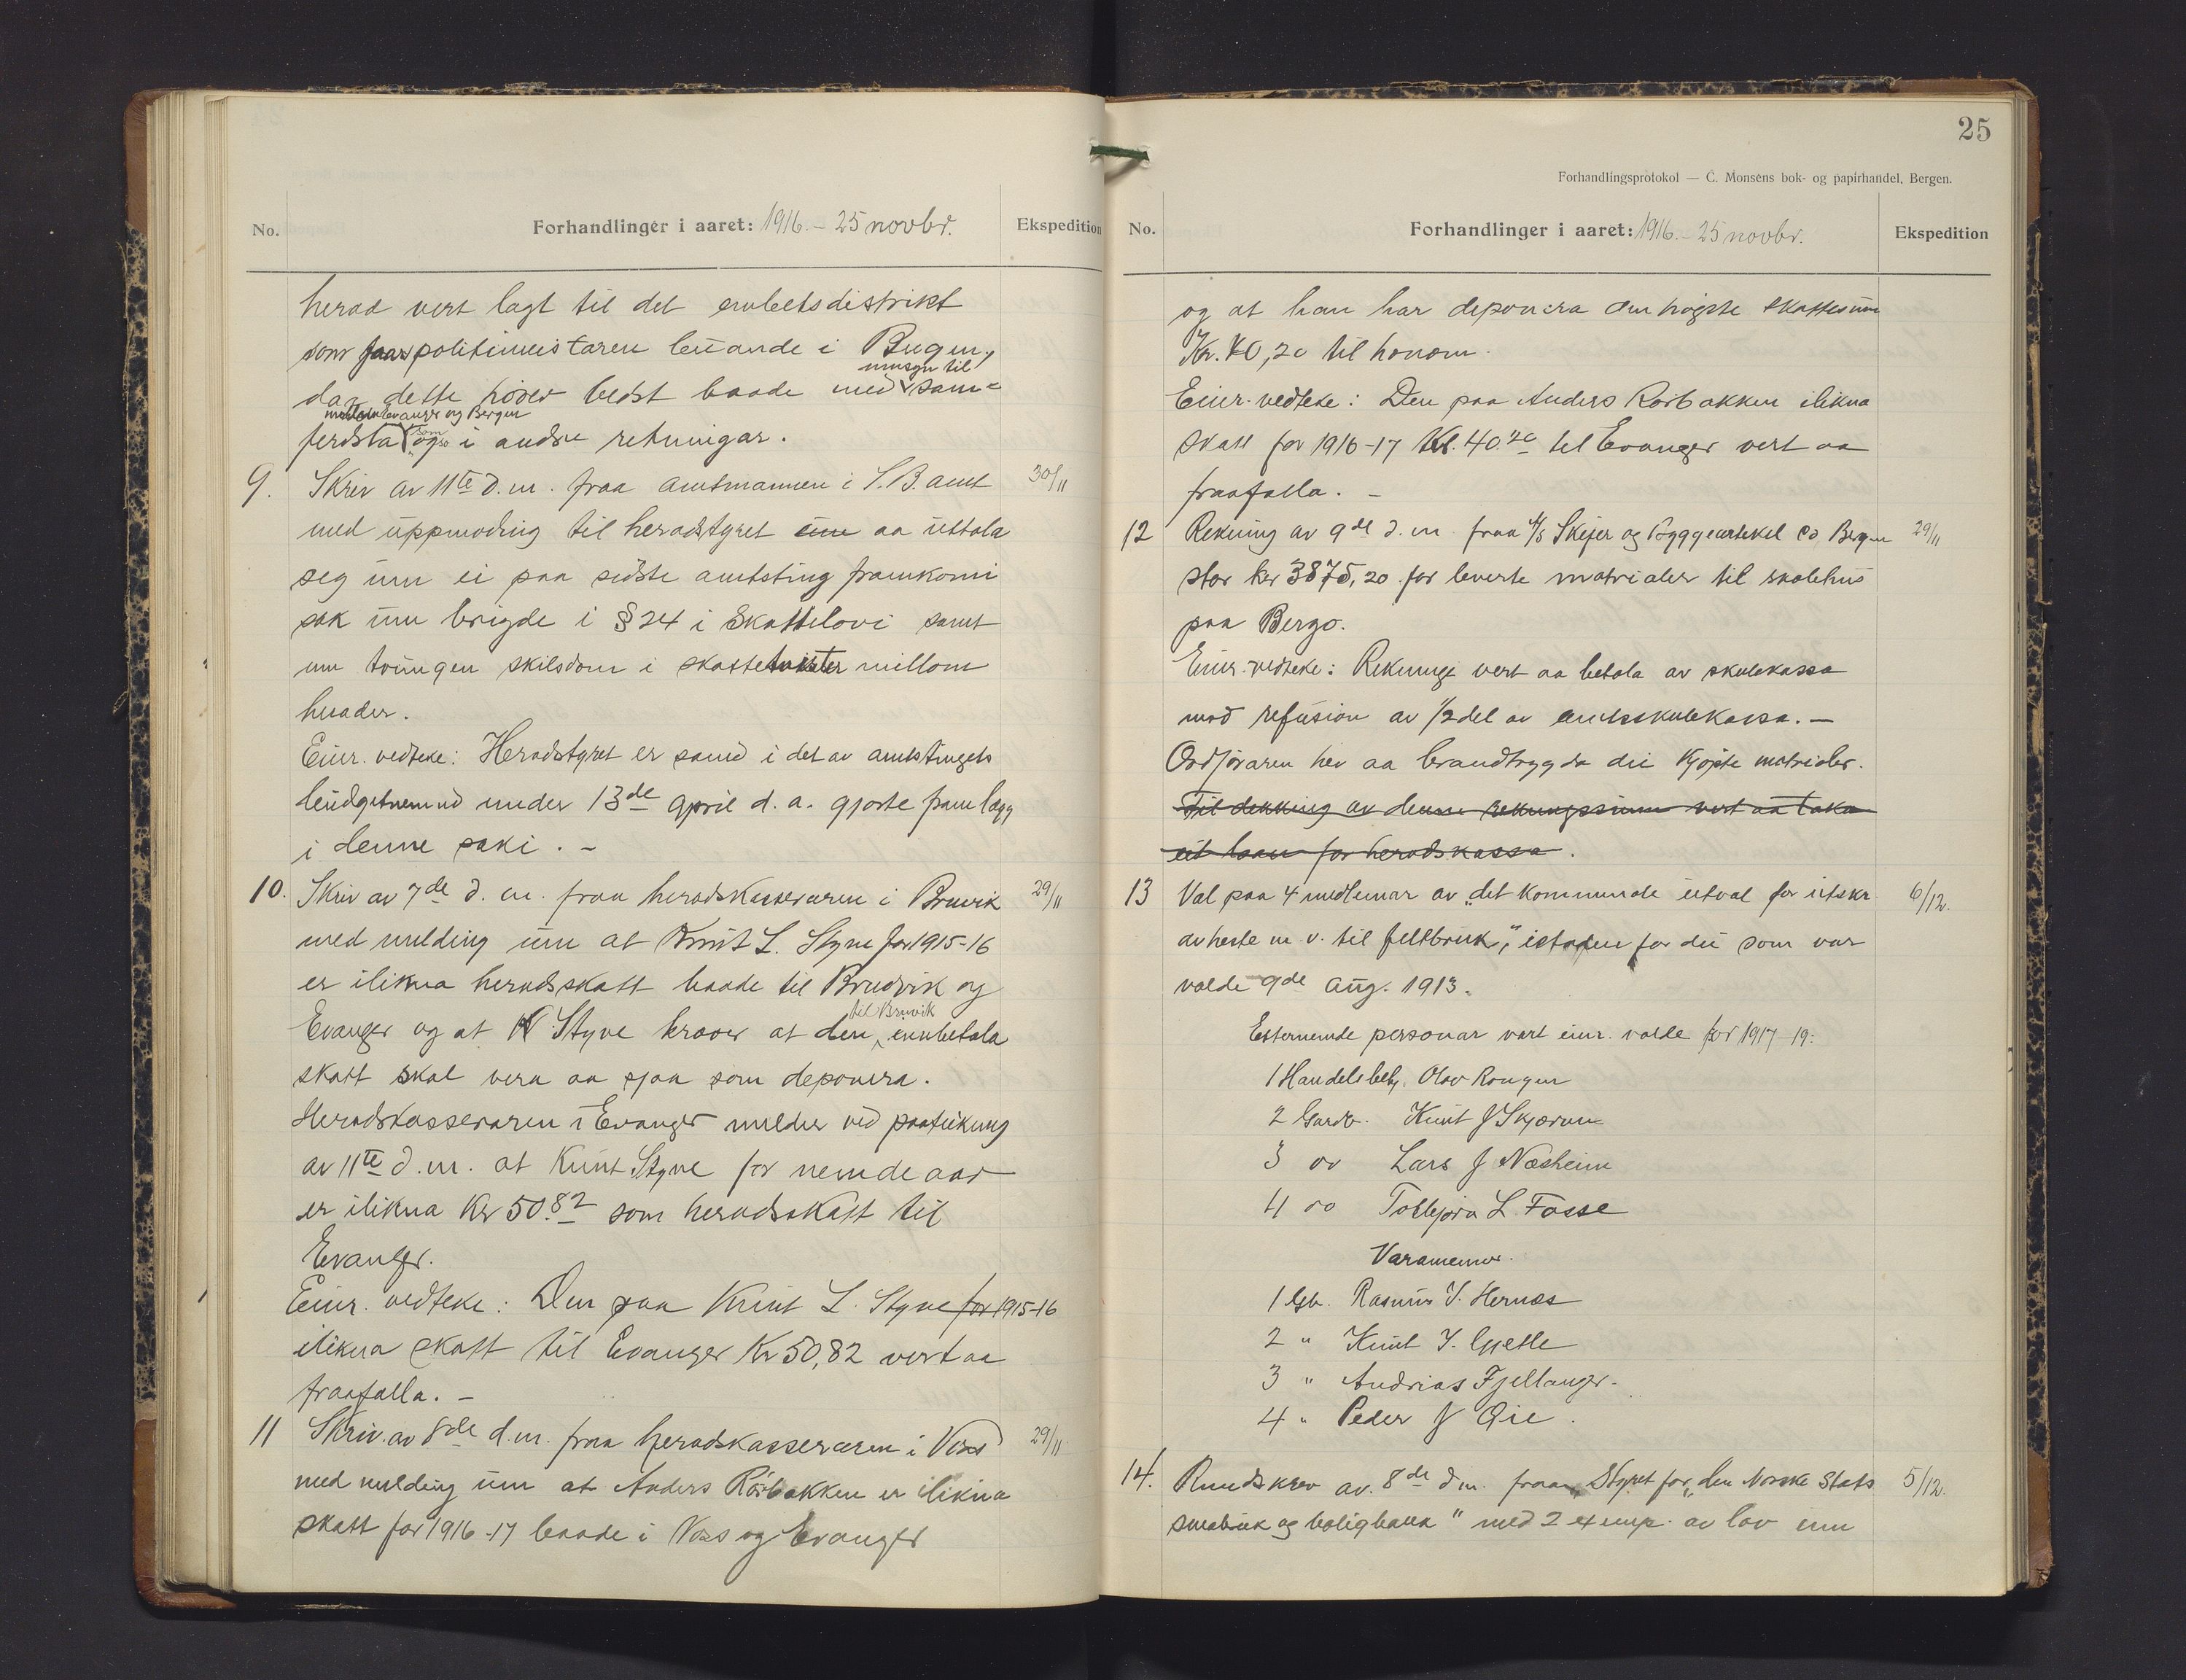 No.
Forhandlinger i aaret: 1916. – 25 novbr.
Ekspedition
herad vert lagt til det embetsdistrikt
som faar politimeistaren buande i Bergen,
daa dette høver bedst baade med umsyn til sam-
ferdsla millom Evanger og Bergen som ogso i andre retningar.
9. Skriv av 11te d.m. fraa amtmannen i S.B. amt 30/11
med uppmoding til heradstyret um aa uttala
seg um ei paa sidste amtsting framkomi
sak um brigde i § 24 i Skattelovi samt
um tvungen skilsdom i skattetvister millom
herader.
Einr. vedteke: Heradstyret er samd i det av amtstingets
budgetnemnd under 13de april d.a. gjorte framlegg
i denne saki. –
10. Skriv av 7de d.m. fraa heradskasseraren i Bruvik 29/11
med melding um at Knut L. Styve for 1915-16
er ilikna heradsskatt baade til Brudvik og
Evanger og at K Styve krever at den til Bruvik innbetala
skatt skal vera aa sjaa som deponera.
Heradskasseraren i Evanger melder ved paateikning
av 11te d.m. at Knut Styve for nemde aar
er ilikna Kr 50.82 som heradsskatt til
Evanger.
Einr. vedteke: Den paa Knut L. Styve for 1915-16
ilikna skatt til Evanger Kr 50,82 vert aa
fraafalla. –
11 Skriv av 8de d.m. fraa heradskasseraren i Voss 29/11
med melding um at Anders Rorbakken er ilikna
skatt for 1916-17 baade i Voss og Evanger
25
Forhandlingsprotokol — C. Monsens bok- og papirhandel, Bergen.
No.
Forhandlinger i aaret: 1916. – 25 novbr.
Ekspedition
og at han har deponera den høgste skattesum
Kr. 40,20 til honom.
Einr. vedteke: Den paa Anders Rorbakken ilikna
skatt for 1916-17 Kr. 40.20 til Evanger vert aa
fraafalla. –
12 Rekning av 9de d.m. fraa A/S Skifer og Byggeartikel Co Bergen 29/11
stor kr 3875,20 for leverte matrialer til skolehus
paa Bergo.
Einr. vedteke: Rekningi vert aa betala av skulekassa
mod refusion av 1/2 del av amtsskulekassa. –
Ordføraren hev aa brandtrygda dei kjøpte matrialer.
Til dekking av denne rekningssum vert aa taka
eit laan for heradskassa.
13 Val paa 4 medlemar av „det kommunde utval for utskr. 6/12.
av heste m.v. til feltbruk", istaden for dei som var
valde 9de aug. 1913.
Etternemde personar vart einr. valde for 1917-19:
1 Handelsbetj. Olav Rongen
2 Gardb. Knut J Skjerven
3 do Lars J Næsheim
4 do Torbjørn L Fosse
Varamenner.
1 Gb. Rasmus I. Hernes
2 " Knut I. Gjelle
3 " Andrias Fjellanger
4 " Peder J Øie.
14. Rundskriv av 8de d.m. fraa Styret for „den Norske Stats 5/12.
smabruk og boligbank" med 2 exemp. av lov um